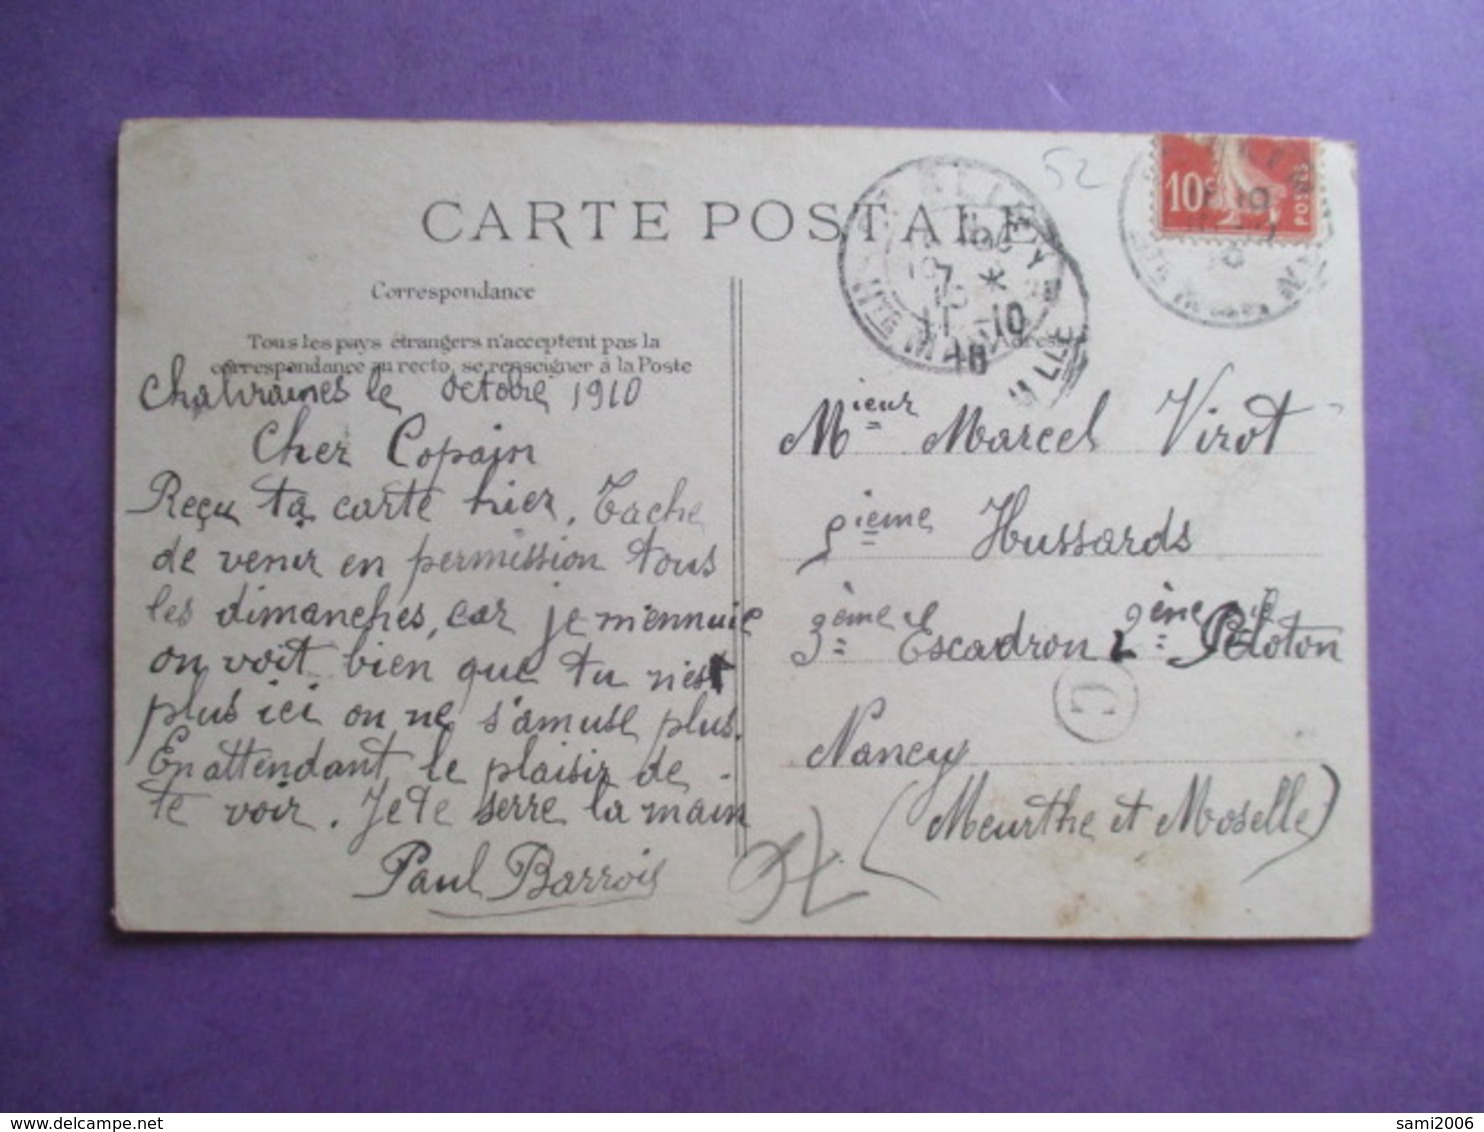 CARTE POSTALE
Correspondance
Tous les pays étrangers n'acceptent pas la
correspondance au recto, se renseigner à la Poste
Chalvraines le octobre 1910
Cher Copain
Reçu ta carte hier. Tache
de venir en permission tous
les dimanches, car je m'ennuie
on voit bien que tu n'est
plus ici on ne s'amuse plus.
En attendant le plaisir de
te voir. Je te serre la main
Paul Barrois
52
10c
POSTES
HTE MARNE
11-10
10
Mieur Marcel Virot
5ième Hussards
3ème Escadron 2ème Peloton
C
Nancy
(Meurthe et Moselle)
sami2006